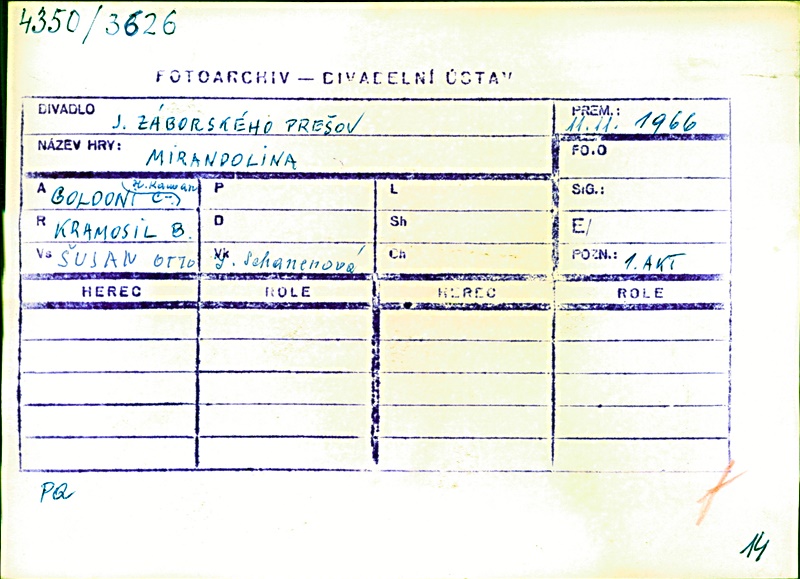 4350/3626
FOTOARCHIV — DIVADELNÍ ÚSTAV
DIVADLO J. ZÁBORSKÉHO PREŠOV PREM.: 11.11. 1966
NÁZEV HRY: MIRANDOLINA FO.O
A GOLDONI C. P L SIG.:
R KRAMOSIL B. D Sh E/
Vs ŠUSAN OTTO Vk J. Schanenová Ch POZN.: 1. AKT
HEREC ROLE HEREC ROLE
PQ
14